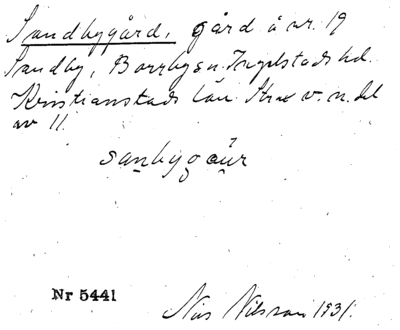 Sandbygård, gård å nr. 19
Sandby, Borrby sn. Ingelstads hd.
Kristianstads län. Strax v. n. del
av 11.
sanbygåur
Nr 5441
Nils Nilsson 1931.